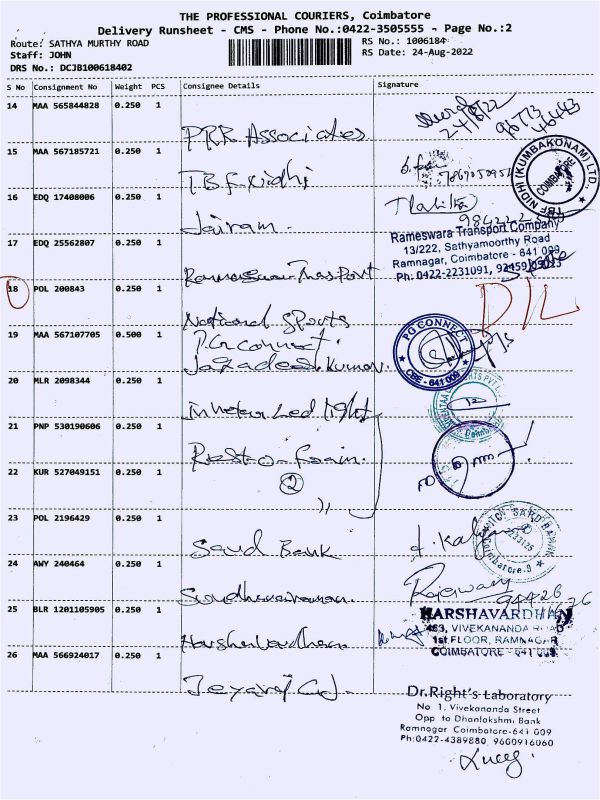 THE PROFESSIONAL COURIERS, Coimbatore
Delivery Runsheet - CMS - Phone No.:0422-3505555 - Page No.:2
Route: SATHYA MURTHY ROAD
RS No.: 1006184
Staff: JOHN
RS Date: 24-Aug-2022
DRS No.: DCJB100618402
S No Consignment No Weight PCS Consignee Details Signature
14 MAA 565844828 0.250 1
PRR Associates
24/8/22
15 MAA 567185721 0.250 1
T.B.F. Nidhi
TBF NIDHI (KUMBAKONAM) LTD.
COIMBATORE
16 EDQ 17408006 0.250 1
Jairam
17 EDQ 25562807 0.250 1
Rameswara Transport Company
13/222, Sathyamoorthy Road
Ramnagar, Coimbatore - 641 009
Ph: 0422-2231091,
18 POL 200843 0.250 1
National Sports
D/L
19 MAA 567107705 0.500 1
P.G connect.
Jagadeesh Kumar.
PG CONNECT
CBE - 641 009
20 MLR 2098344 0.250 1
Led light
21 PNP 530190606 0.250 1
22 KUR 527049151 0.250 1
2
23 POL 2196429 0.250 1
Saud Bank
24 AWY 240464 0.250 1
25 BLR 1201105905 0.250 1
Harshavardhan
HARSHAVARDHAN
463, VIVEKANANDA ROAD
1st FLOOR, RAMNAGAR
COIMBATORE - 641 009
26 MAA 566924017 0.250 1
Jeyaraj
Dr.Right's Laboratory
No 1, Vivekananda Street
Opp to Dhanlakshmi Bank
Ramnagar Coimbatore-641 009
Ph:0422-4389880, 9600916060